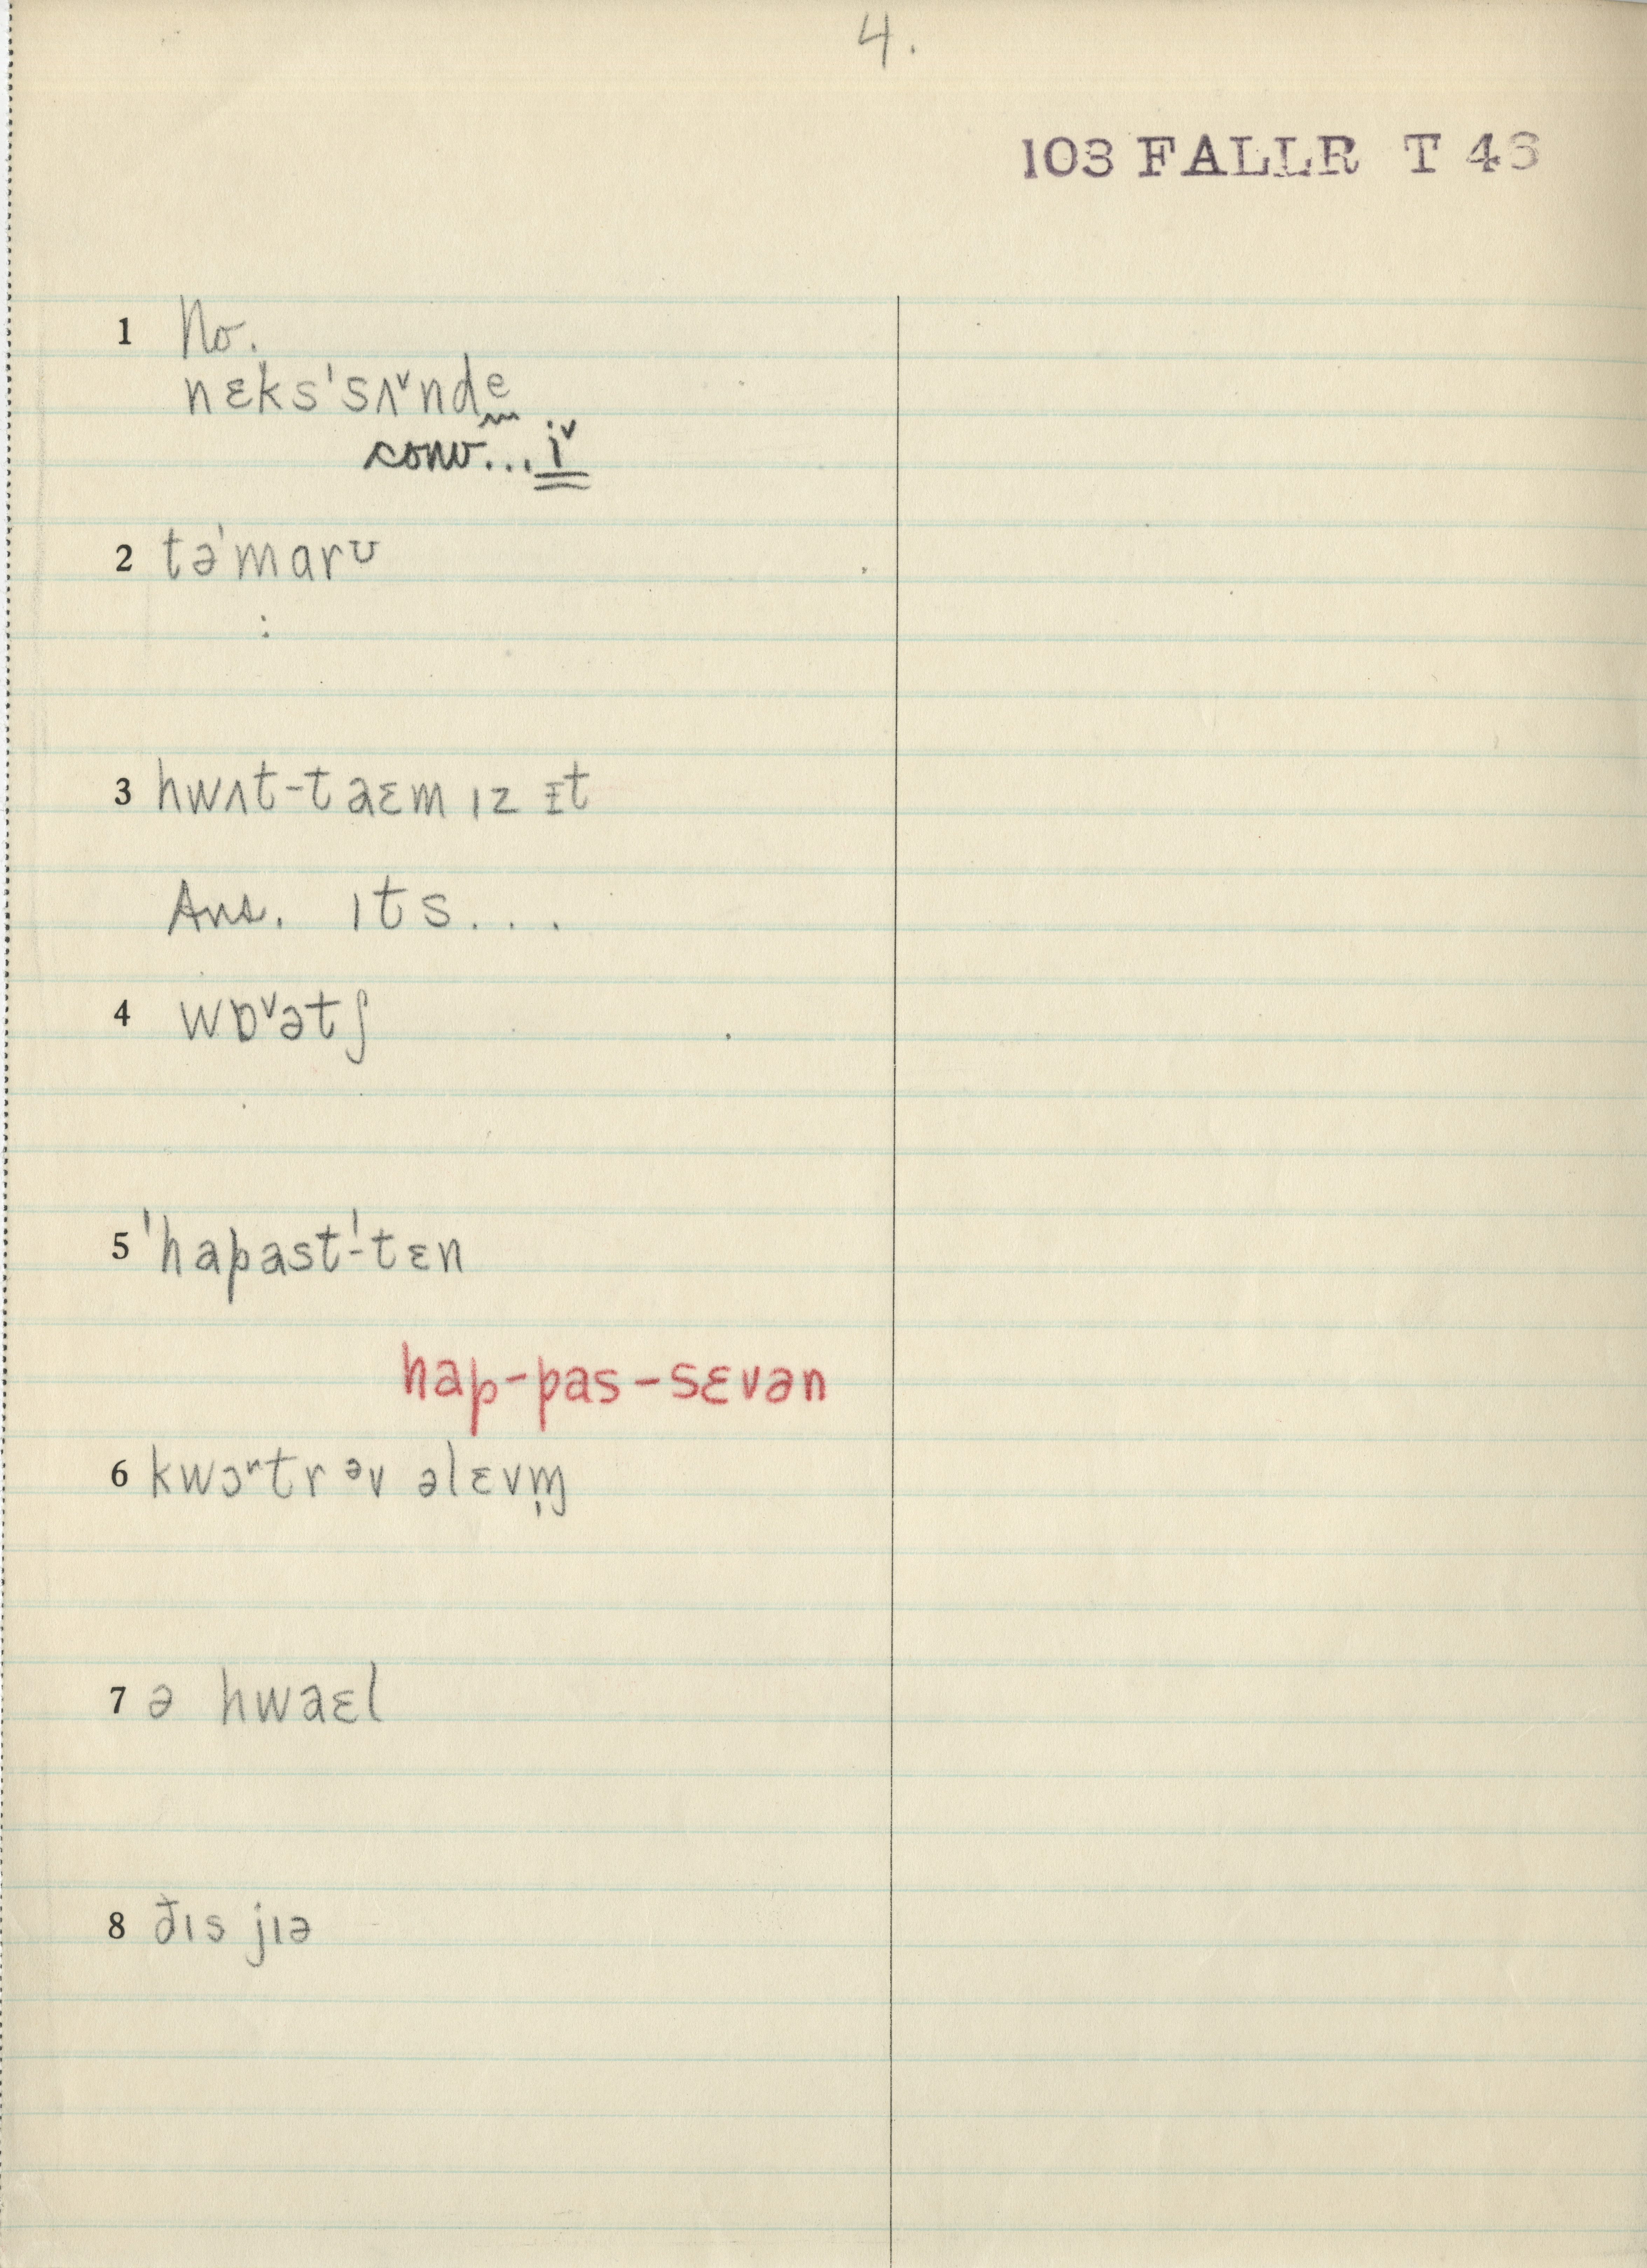 4.
103 FALLR T 43
1 No.
nɛks'sʌ˅ndḛ
conv...i˅
2 tə'marʊ
:
3 hwʌt-taɛm ɪz ɪt
Ans. ɪts...
4 wɒ˅ətʃ
5 'hapast'-tɛn
hap-pas-sɛvən
6 kwɔ˞tr əv əlɛvm̩
7 ə hwaɛl
8 ðɪs jɪə